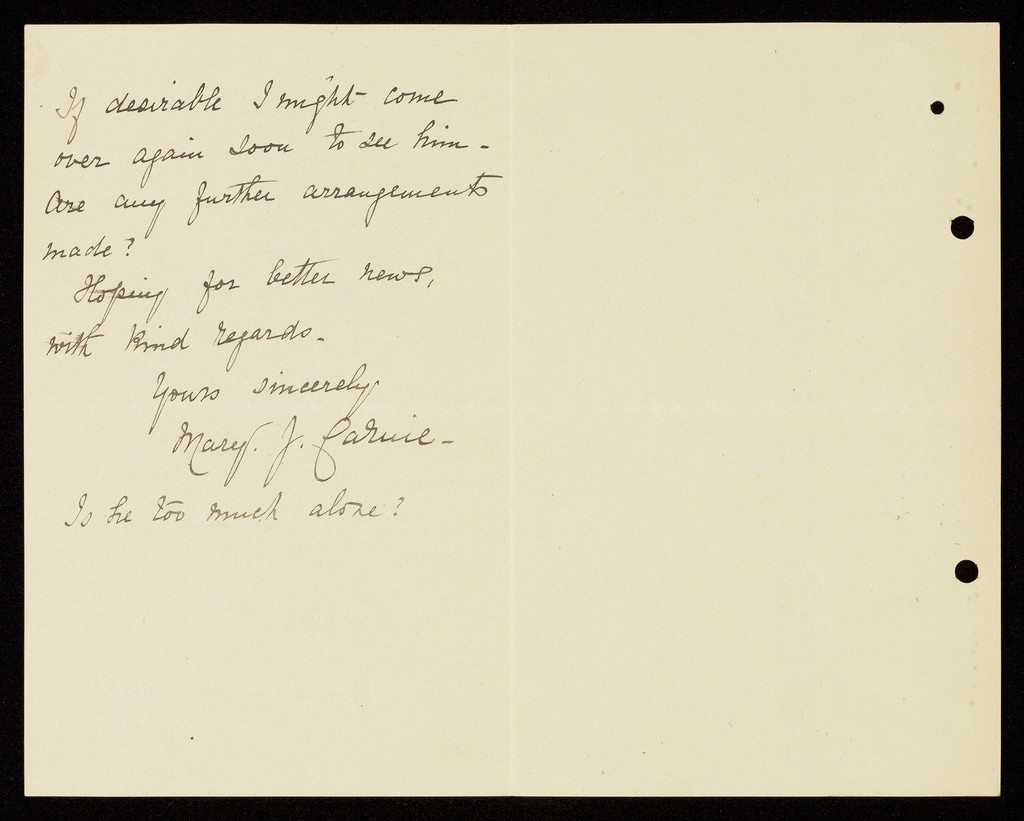 If desirable I might come
over again soon to see him -
Are any further arrangements
made?
Hoping for better news,
with kind regards -
Yours sincerely
Mary. J. Carnie -
Is he too much alone?